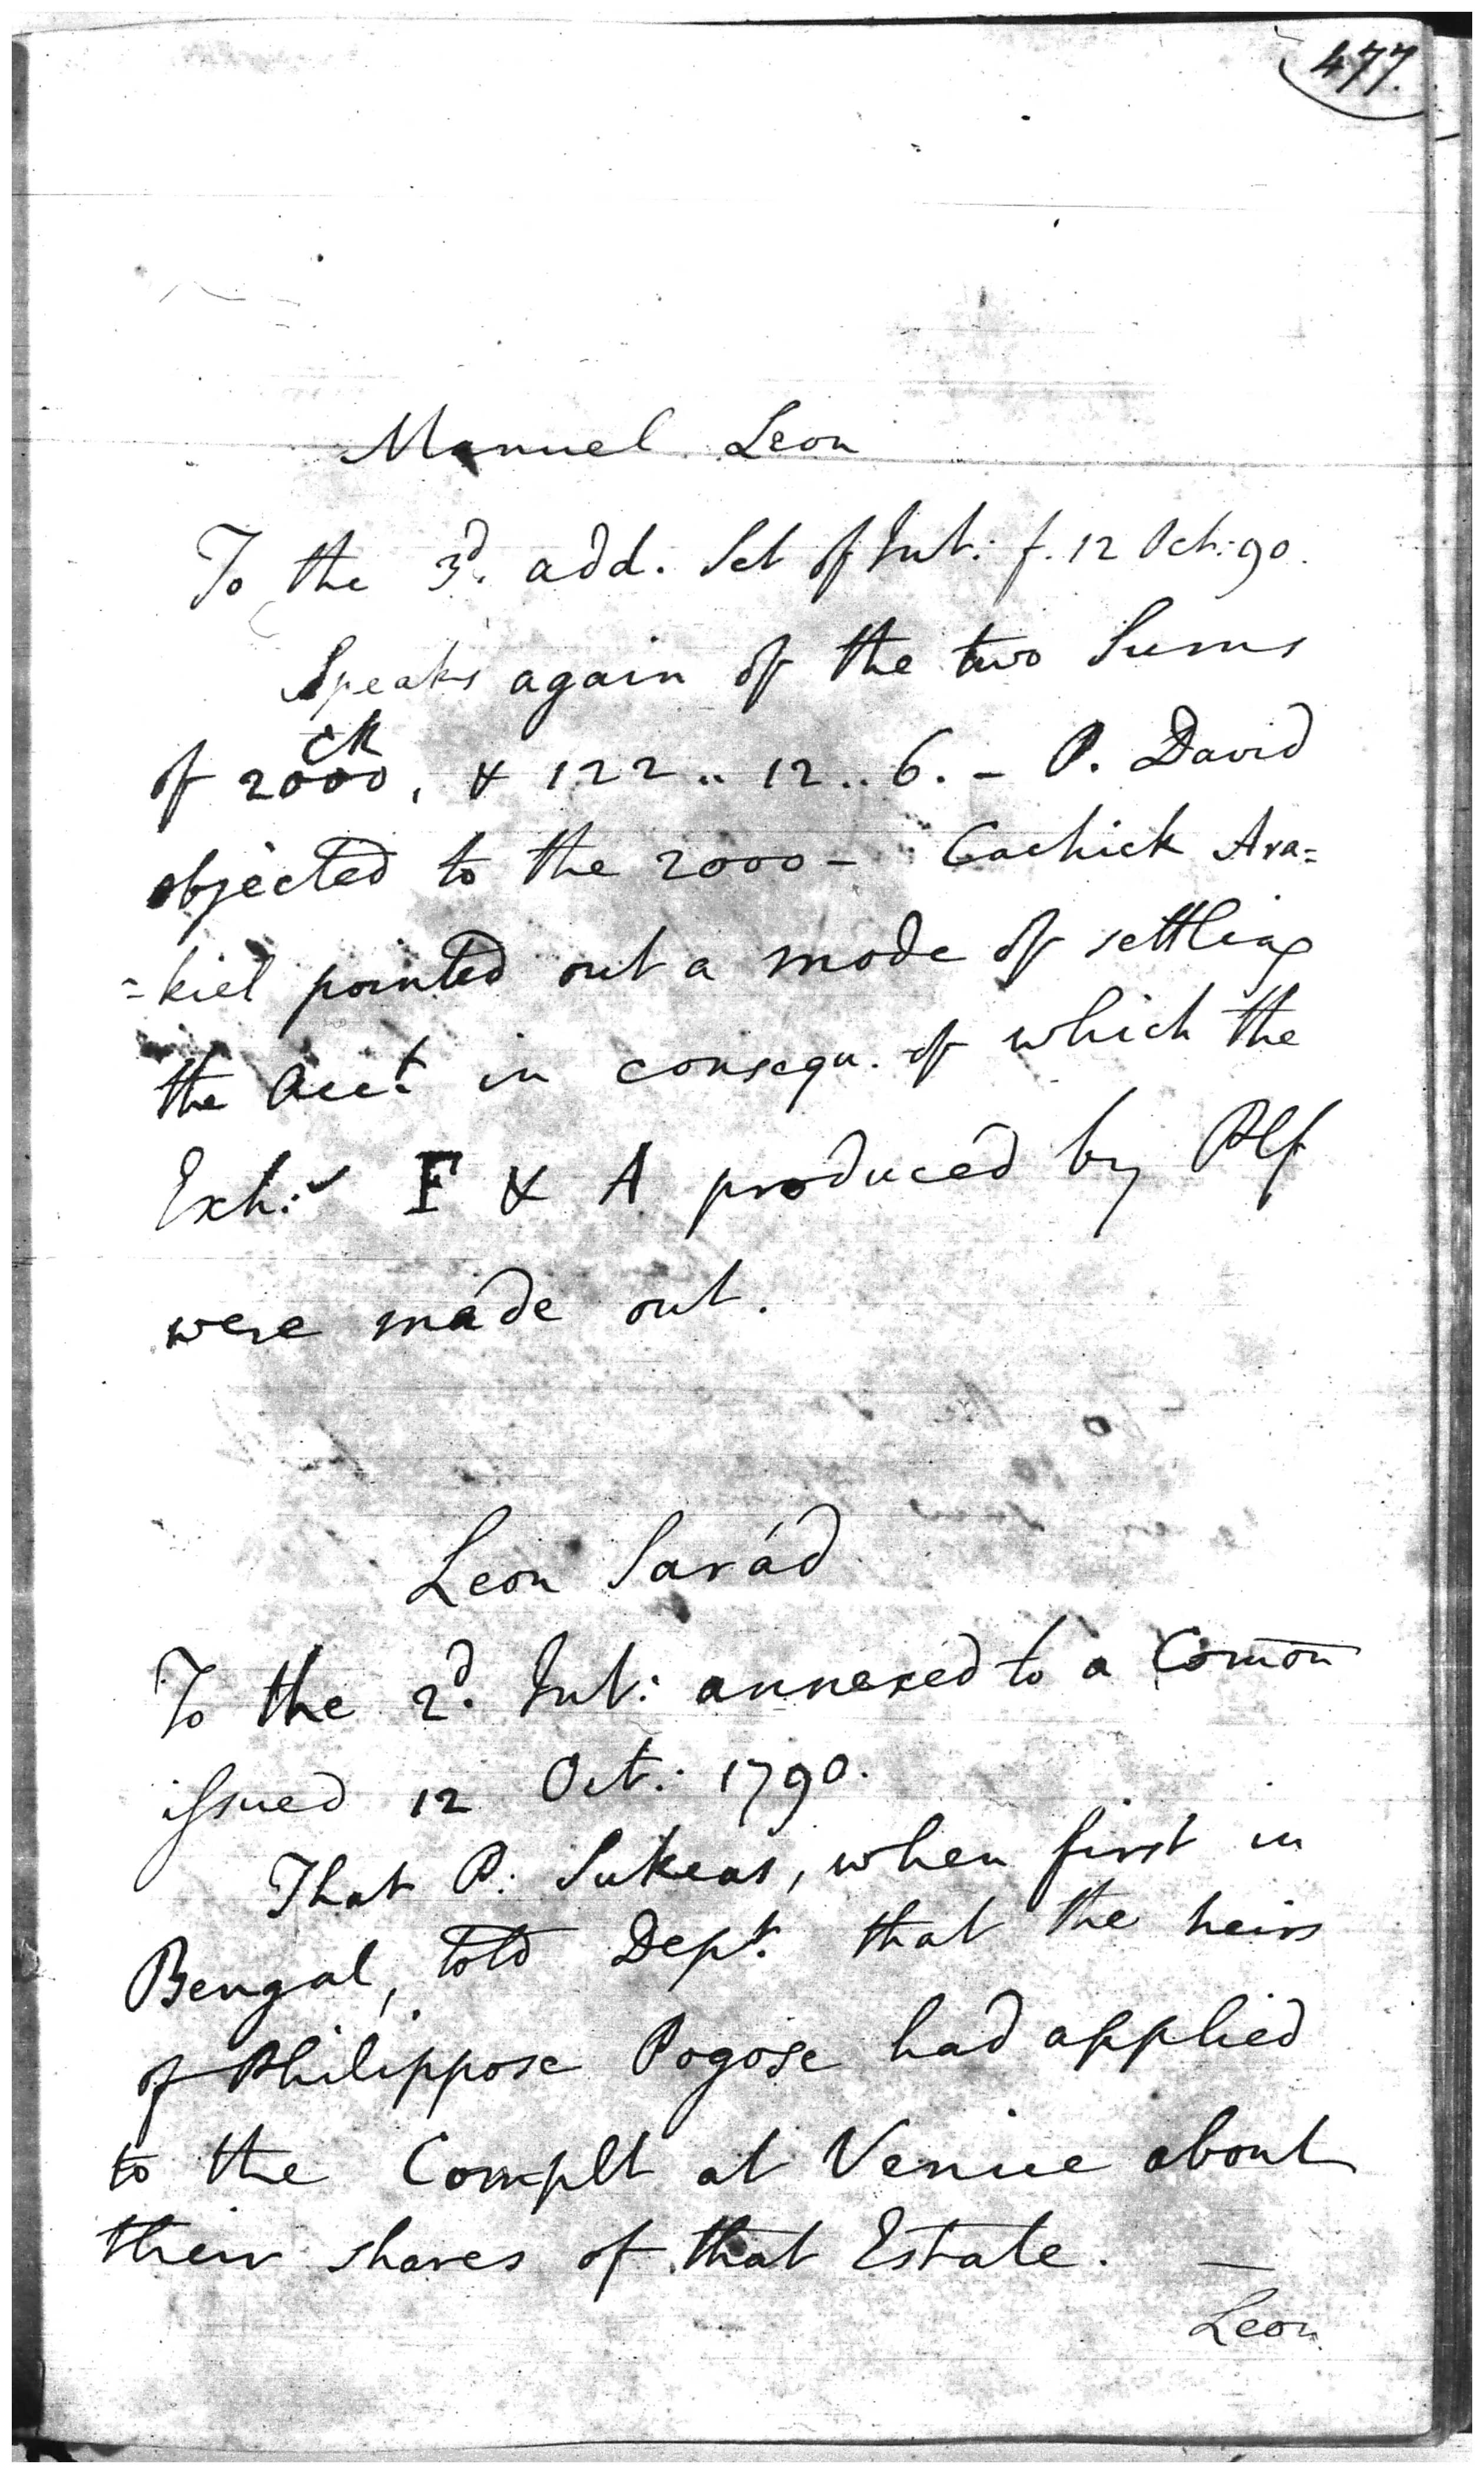 477.
Manuel Leon
To the 3d. add. Set of Int: f. 12 Oct: 90.
Speaks again of the two Sums
CR
of 2000, & 122 .. 12 .. 6. - P. David
objected to the 2000 - Cachick Ara=
=kiel pointed out a mode of settling
the Acct. in consequ. of which the
Exh:s F & A produced by Plf
were made out.
Leon Sarád
To the 2d. Int: annexed to a Comōn
issued 12 Oct: 1790.
That P: Sukeas, when first in
Bengal, told Dept. that the heirs
of Philippose Pogose had applied
to the Complt at Venice about
their shares of that Estate. —
Leon